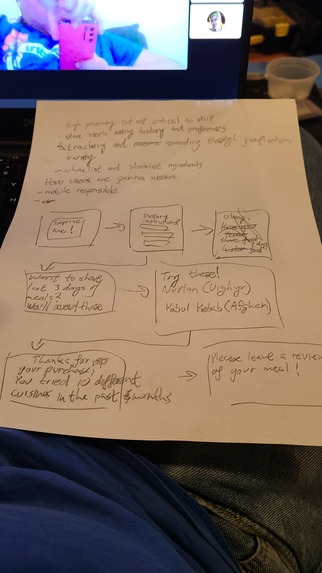 High priority but not critical to MVP
store user's eating history and preferences
tracking and rewarding through gamification,
variety
- whitelist and blacklist ingredients
How users are gonna interact
- mobile responsible
Surprise
me!
Dietary
restrictions?
Okay,
Want to share
last 3 days of
meals?
We'll avoid those
Try these!
Nurlan (Uighyr)
Kabul Kebab (Afghan)
Thanks for
your purchase,
You tried 10 different
cuisines in the past months
Please leave a review
of your meal!